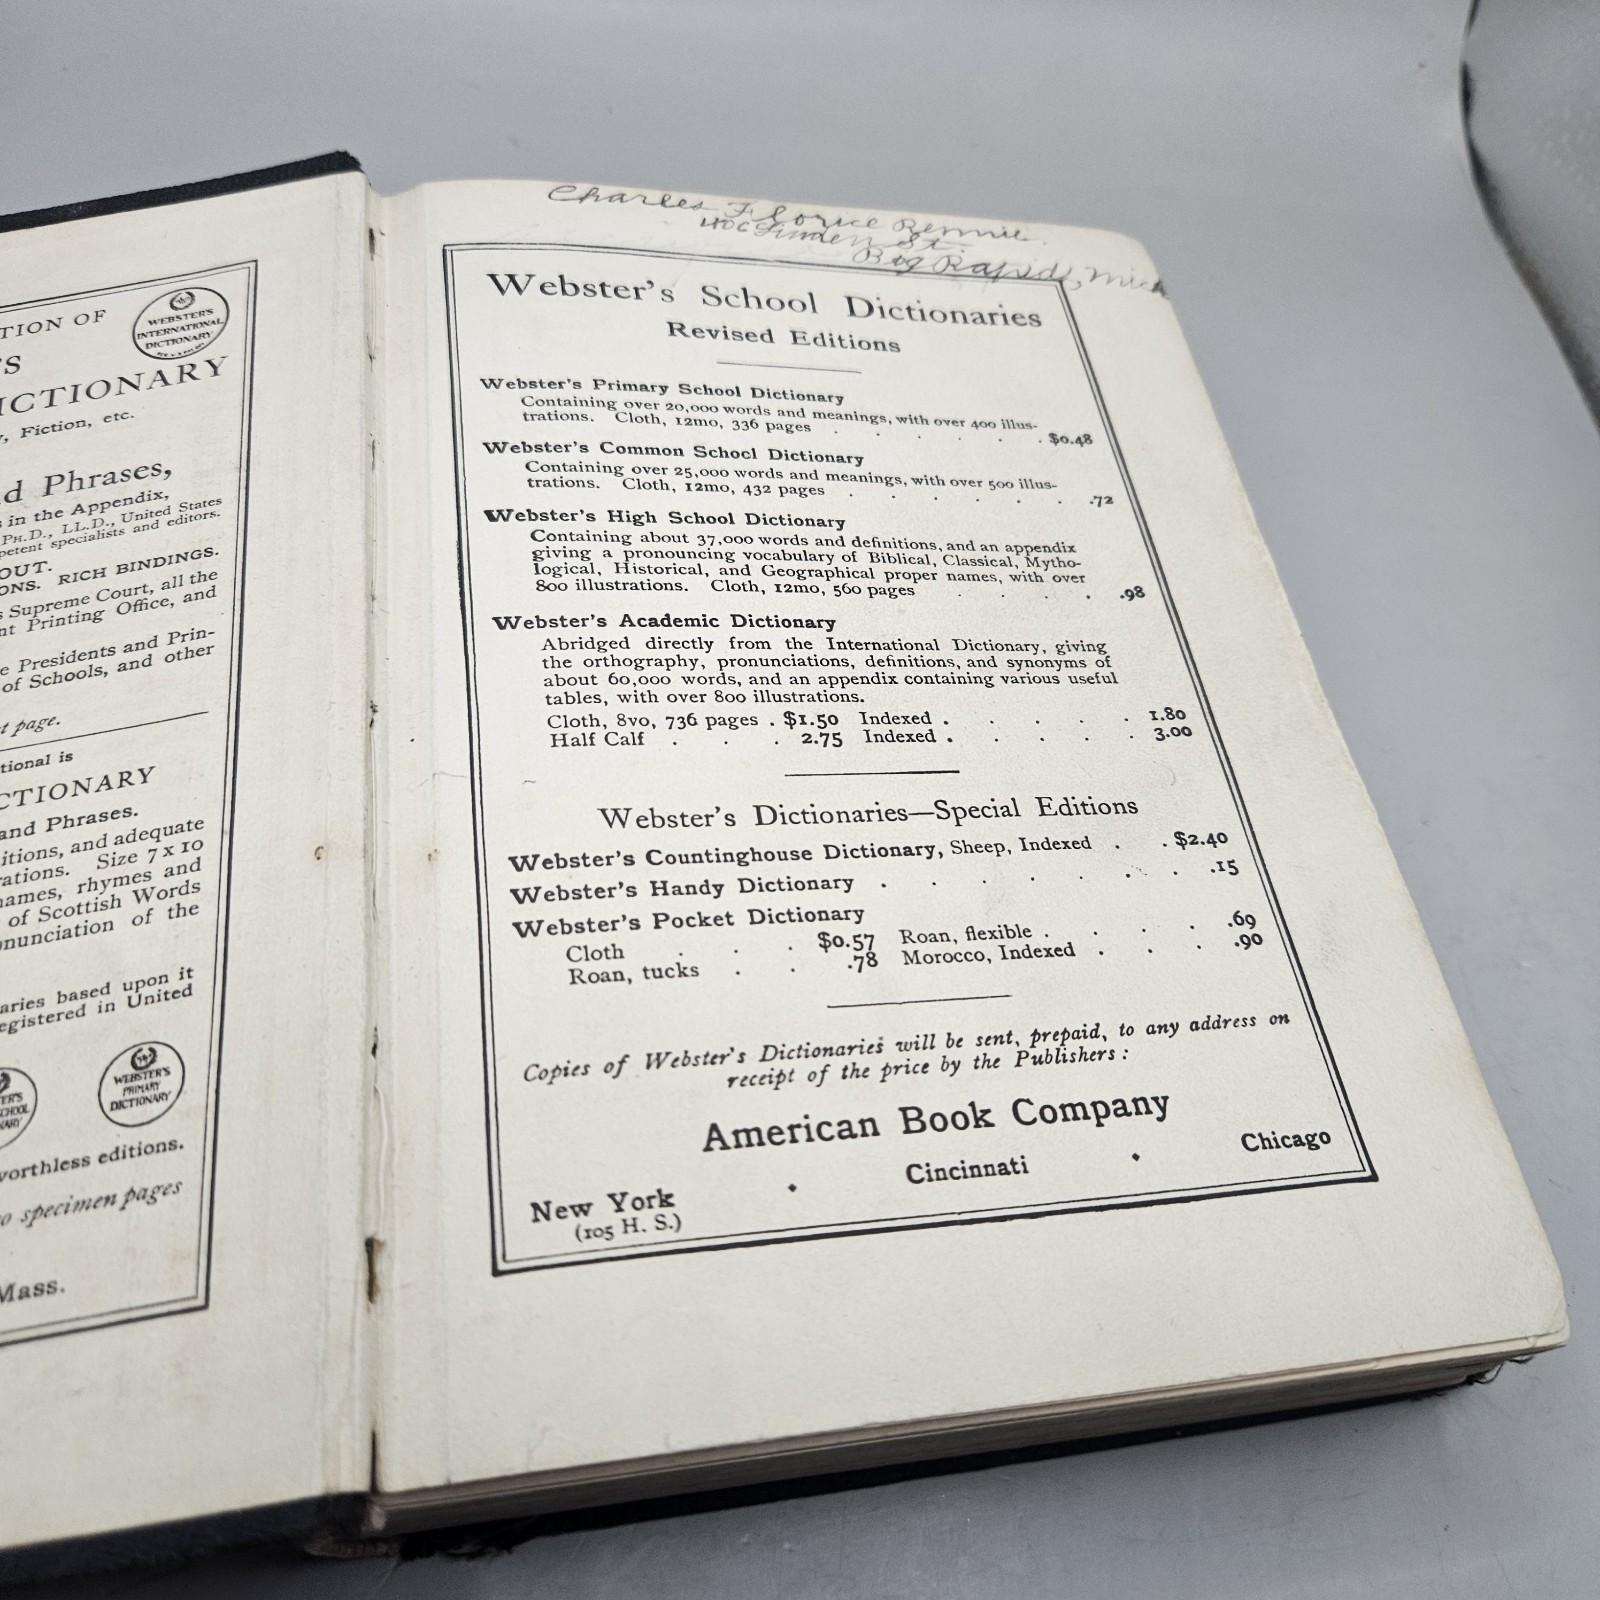 TION OF
WEBSTER'S
INTERNATIONAL
DICTIONARY
'S
ICTIONARY
, Fiction, etc.
d Phrases,
s in the Appendix,
PH.D., LL.D., United States
petent specialists and editors.
OUT.
ONS. RICH BINDINGS.
s Supreme Court, all the
nt Printing Office, and
e Presidents and Prin-
of Schools, and other
t page.
tional is
CTIONARY
and Phrases.
itions, and adequate
ations. Size 7 x 10
names, rhymes and
of Scottish Words
onunciation of the
aries based upon it
egistered in United
TER'S
CHOOL
NARY
WEBSTER'S
PRIMARY
DICTIONARY
worthless editions.
o specimen pages
Mass.
Charles Florice Rennie
Linden St.
Big Rapids, Mich
Webster's School Dictionaries
Revised Editions
Webster's Primary School Dictionary
Containing over 20,000 words and meanings, with over 400 illus-
trations. Cloth, 12mo, 336 pages . . . . . . $0.48
Webster's Common School Dictionary
Containing over 25,000 words and meanings, with over 500 illus-
trations. Cloth, 12mo, 432 pages . . . . . . .72
Webster's High School Dictionary
Containing about 37,000 words and definitions, and an appendix
giving a pronouncing vocabulary of Biblical, Classical, Mytho-
logical, Historical, and Geographical proper names, with over
800 illustrations. Cloth, 12mo, 560 pages . . . . .98
Webster's Academic Dictionary
Abridged directly from the International Dictionary, giving
the orthography, pronunciations, definitions, and synonyms of
about 60,000 words, and an appendix containing various useful
tables, with over 800 illustrations.
Cloth, 8vo, 736 pages . $1.50 Indexed . . . . . 1.80
Half Calf . . . 2.75 Indexed . . . . . 3.00
Webster's Dictionaries—Special Editions
Webster's Countinghouse Dictionary, Sheep, Indexed . . $2.40
Webster's Handy Dictionary . . . . . . . .15
Webster's Pocket Dictionary
Cloth . . . $0.57 Roan, flexible . . . . .69
Roan, tucks . . .78 Morocco, Indexed . . . .90
Copies of Webster's Dictionaries will be sent, prepaid, to any address on
receipt of the price by the Publishers:
American Book Company
New York • Cincinnati • Chicago
(105 H. S.)